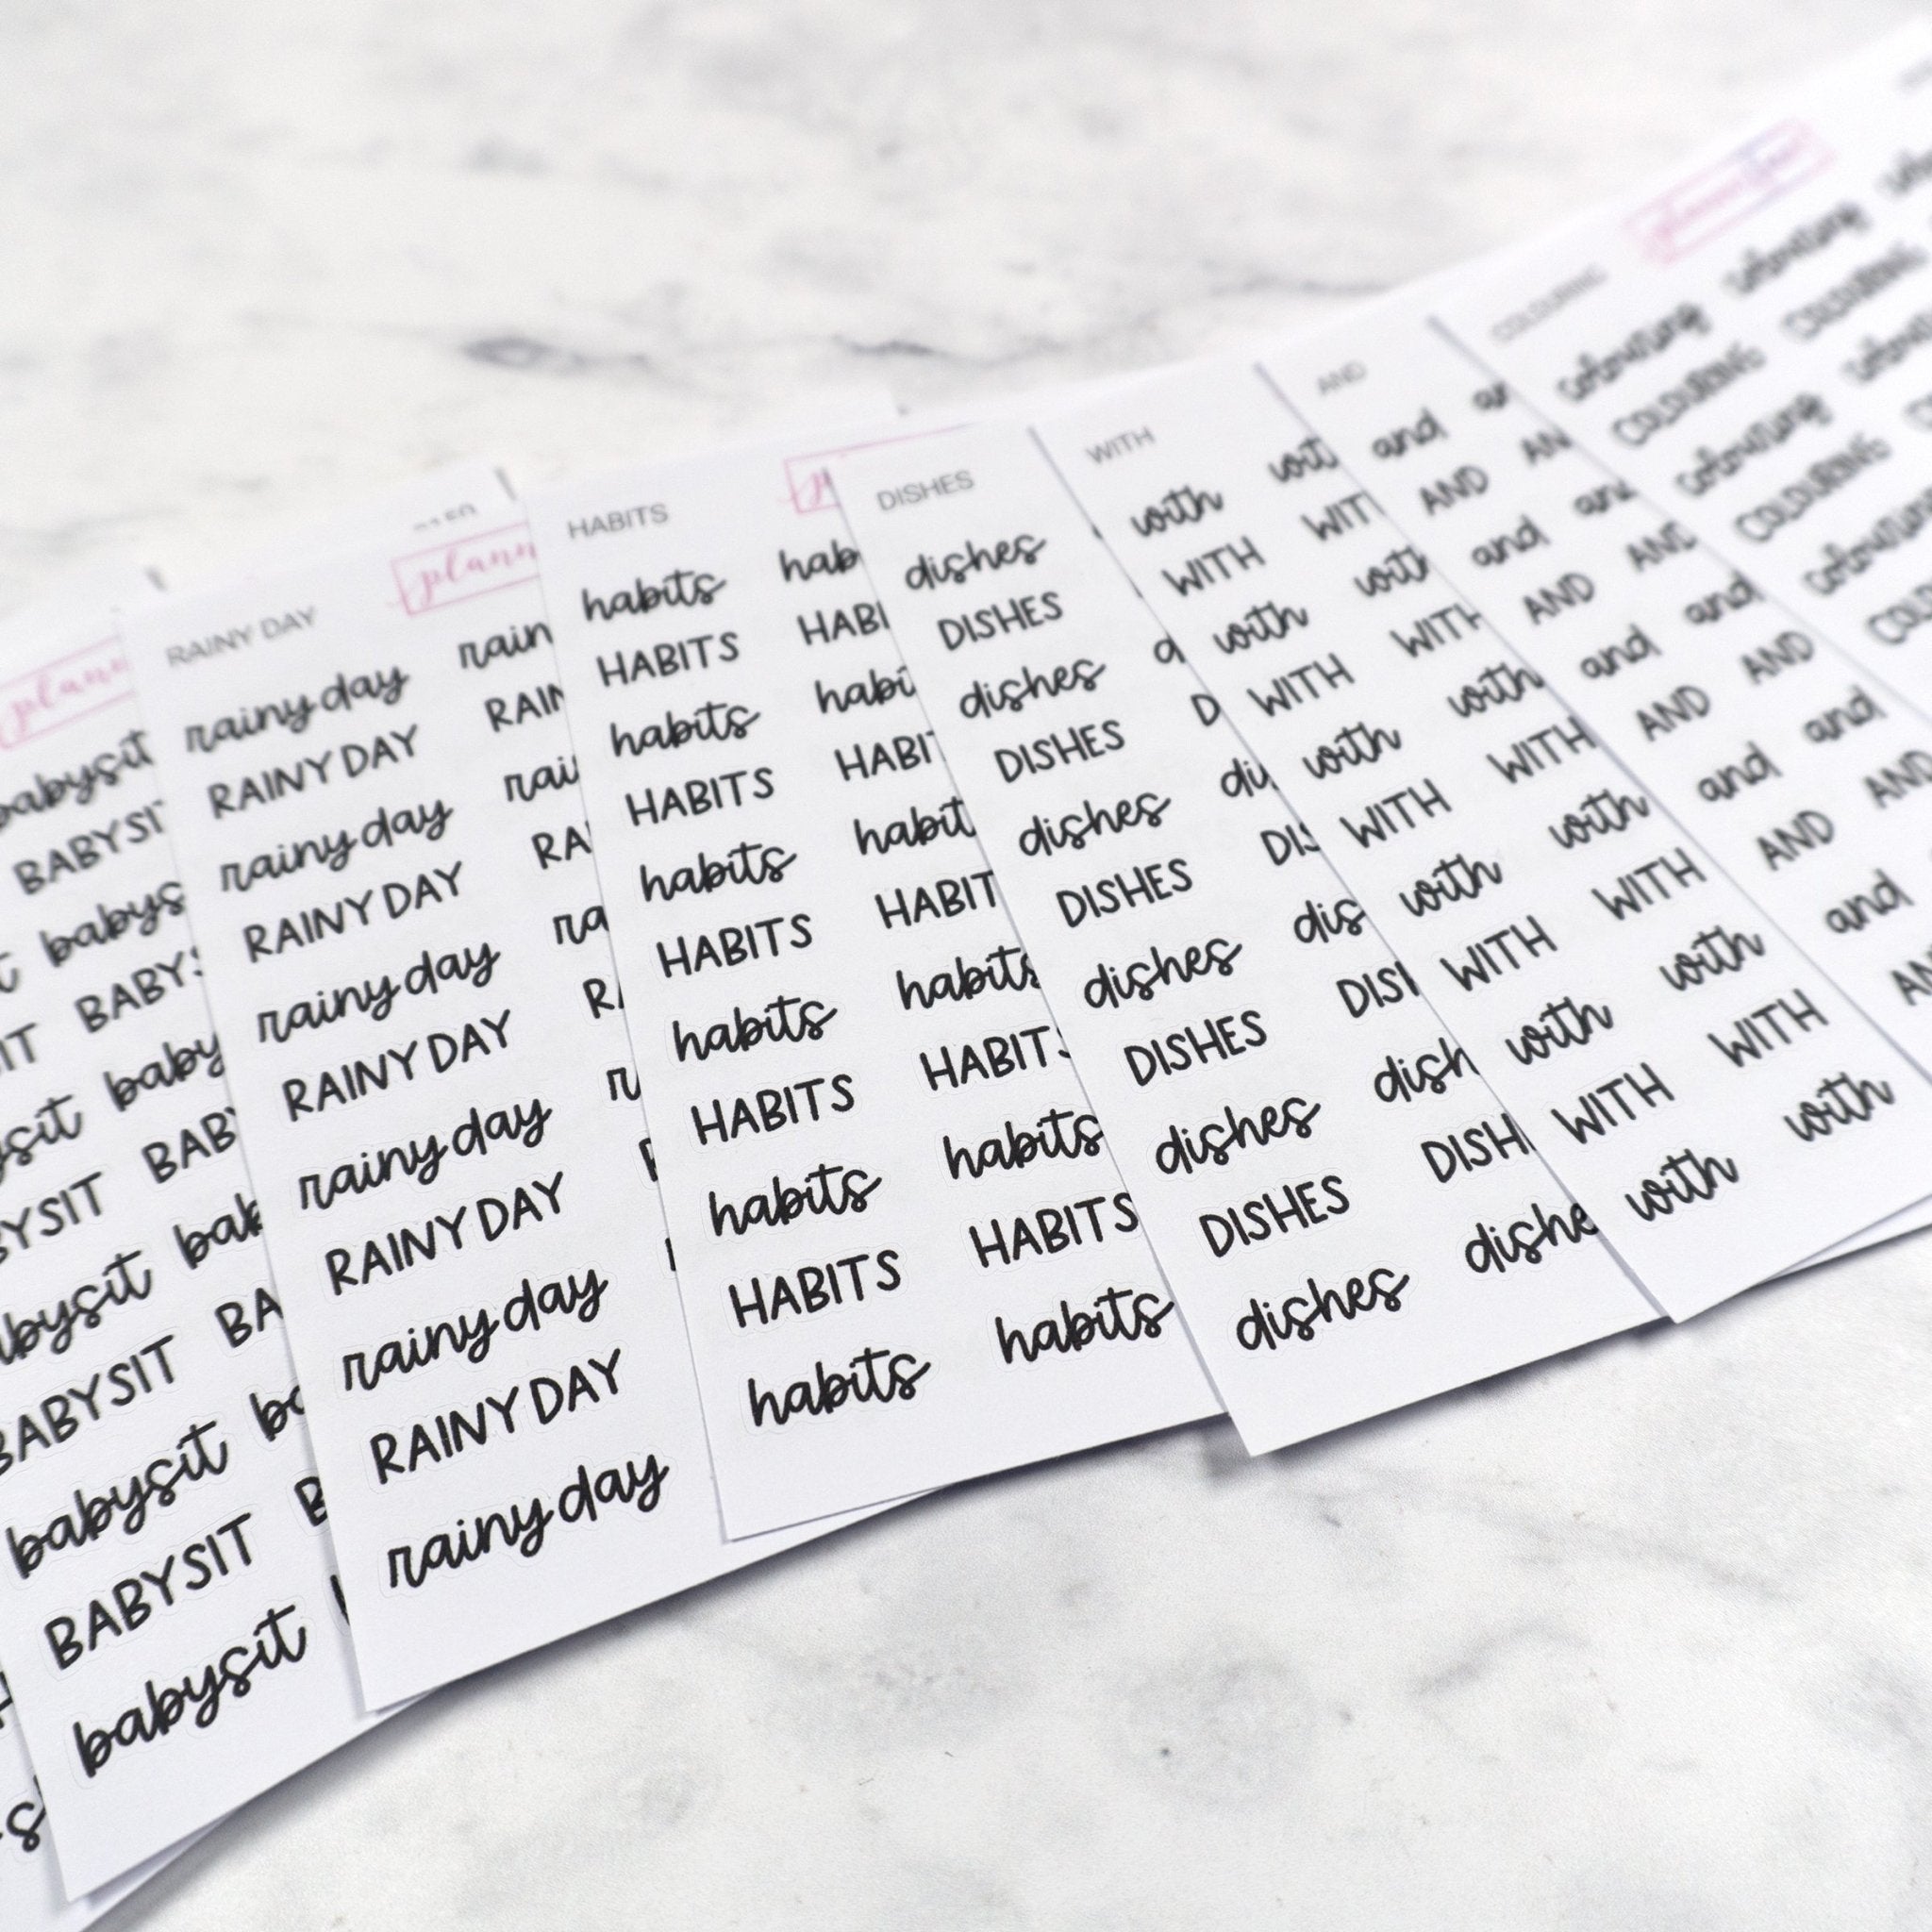 babysit
BABYSIT
babysit
BABYSIT
babysit
BABYSIT
babysit
BABYSIT
babysit
BABYSIT
babysit
RAINY DAY
plann
rainy day rain
RAINY DAY RAIN
rainy day rai
RAINY DAY RA
rainy day ra
RAINY DAY RA
rainy day
RAINY DAY
rainy day
RAINY DAY
rainy day
HABITS
habits hab
HABITS HABI
habits habi
HABITS HABIT
habits habit
HABITS HABIT
habits habits
HABITS HABITS
habits habits
HABITS HABITS
habits habits
DISHES
dishes
DISHES
dishes d
DISHES D
dishes di
DISHES DIS
dishes dis
DISHES DISH
dishes dish
DISHES DISH
dishes dishe
WITH
with wit
WITH WIT
with with
WITH WITH
with with
WITH WITH
with with
WITH WITH
with with
WITH WITH
with with
AND
and an
AND AN
and and
AND AND
and and
AND AND
and and
AND AND
and
AN
COLOURING
colouring colouring
COLOURING COLOURING
colouring colou
COLOURING
colouring
COL